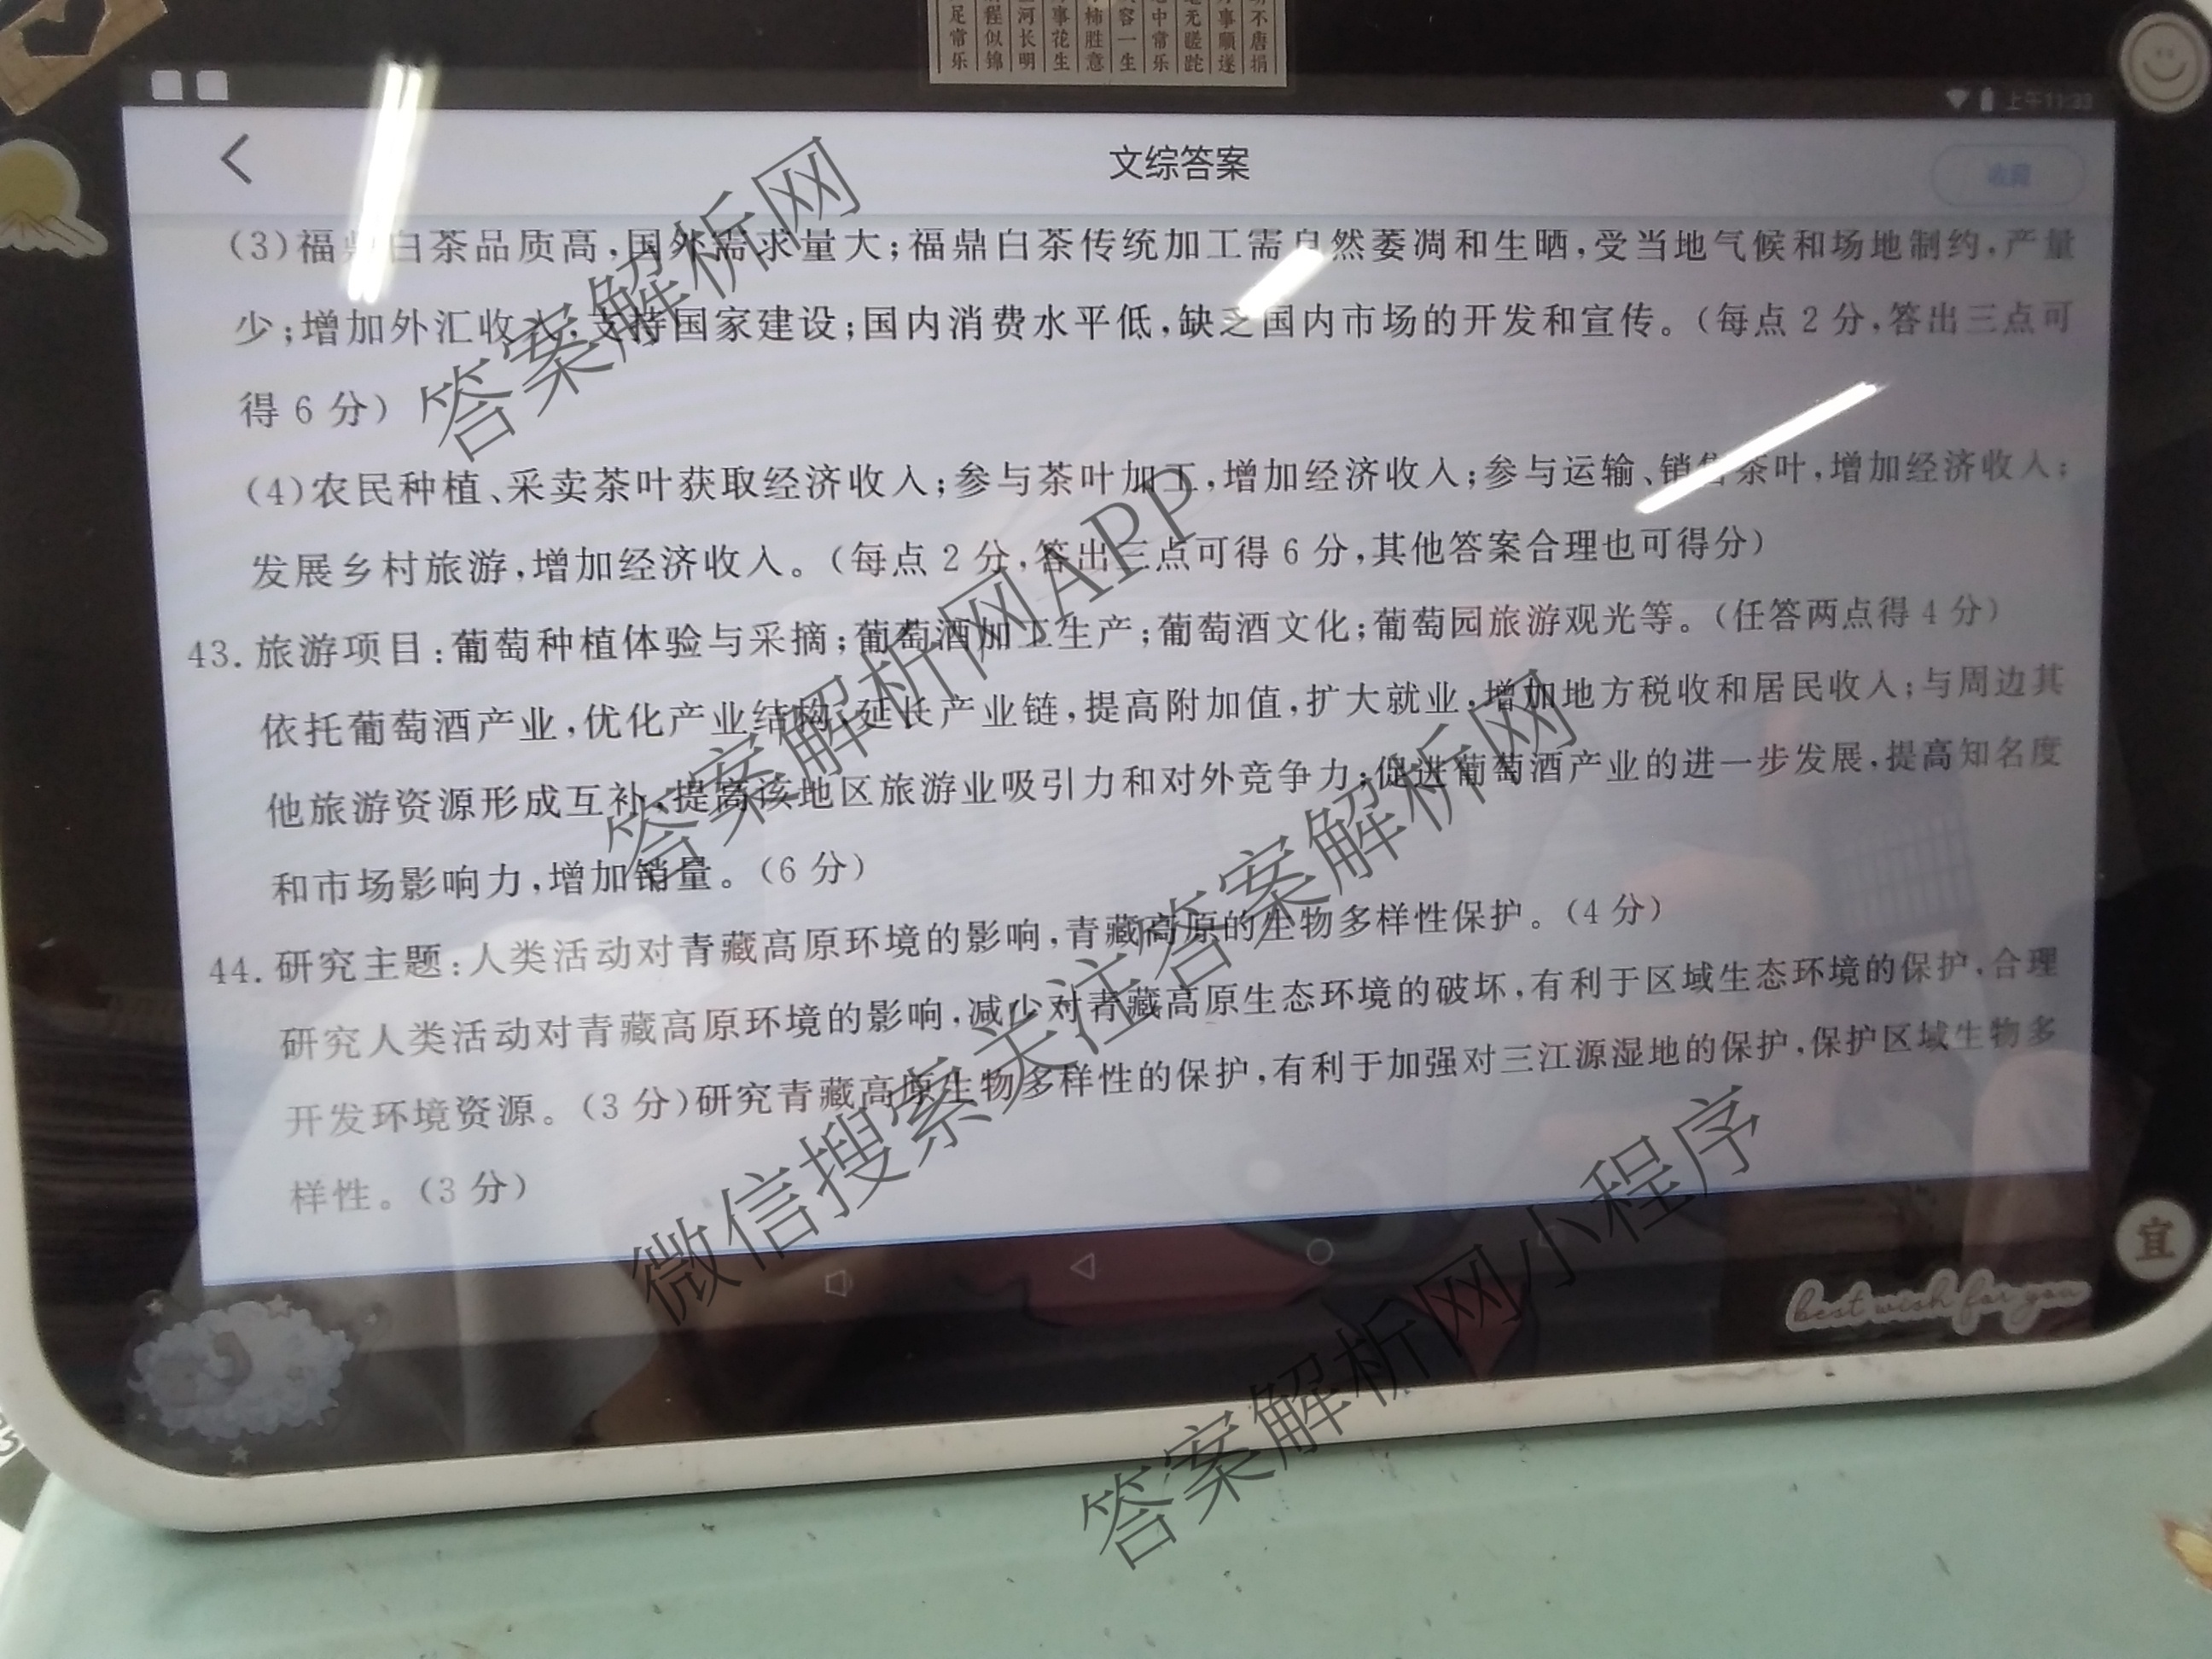 足常乐
程似锦
河长明
事花生
柿胜意
容一生
中常乐
无蹉跎
事顺遂
不唐捐
上午11:33
文综答案
收藏
(3)福鼎白茶品质高,国外需求量大;福鼎白茶传统加工需自然萎凋和生晒,受当地气候和场地制约,产量
少;增加外汇收入,支持国家建设;国内消费水平低,缺乏国内市场的开发和宣传。(每点2分,答出三点可
得6分)
(4)农民种植、采卖茶叶获取经济收入;参与茶叶加工,增加经济收入;参与运输、销售茶叶,增加经济收入;
发展乡村旅游,增加经济收入。(每点2分,答出三点可得6分,其他答案合理也可得分)
43.旅游项目:葡萄种植体验与采摘;葡萄酒加工生产;葡萄酒文化;葡萄园旅游观光等。(任答两点得4分)
依托葡萄酒产业,优化产业结构,延长产业链,提高附加值,扩大就业,增加地方税收和居民收入;与周边其
他旅游资源形成互补,提高该地区旅游业吸引力和对外竞争力;促进葡萄酒产业的进一步发展,提高知名度
和市场影响力,增加销量。(6分)
44.研究主题:人类活动对青藏高原环境的影响,青藏高原的生物多样性保护。(4分)
研究人类活动对青藏高原环境的影响,减少对青藏高原生态环境的破坏,有利于区域生态环境的保护,合理
开发环境资源。(3分)研究青藏高原生物多样性的保护,有利于加强对三江源湿地的保护,保护区域生物多
样性。(3分)
答案解析网
答案解析网APP
微信搜索关注答案解析网
答案解析网小程序
宜
best wish for you